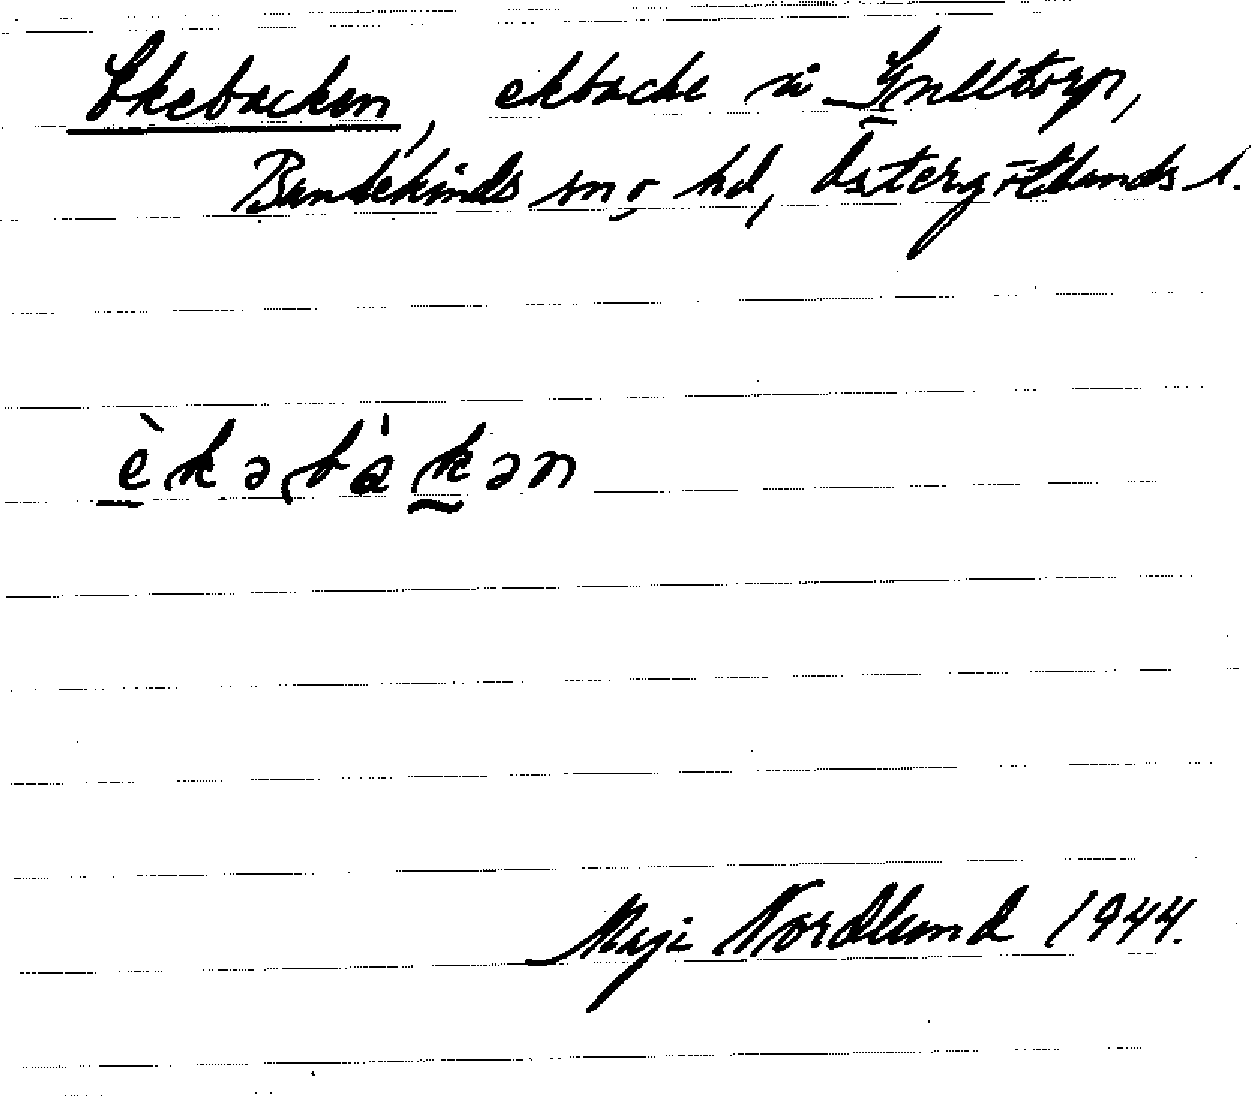 Ekebacken, ekbacke i Gnulltorp,
Bankekinds sn o hd, Östergötlands l.
èkəbàkən
Maji Nordlund 1944.